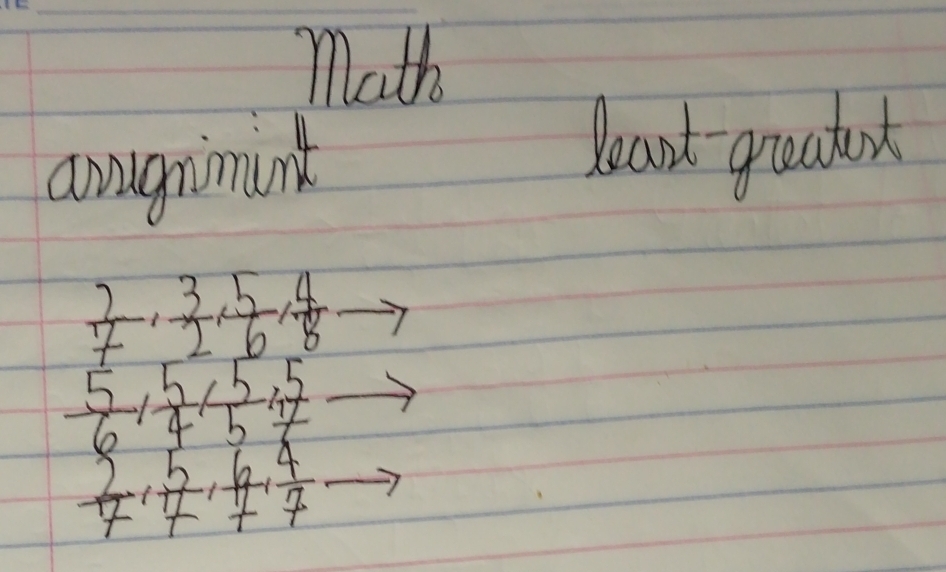 Math
assignimint least-greatest
2/7, 3/2, 5/6, 4/8 →
5/6, 5/4, 5/5, 5/7 →
2/7, 5/7, 6/7, 4/7 →